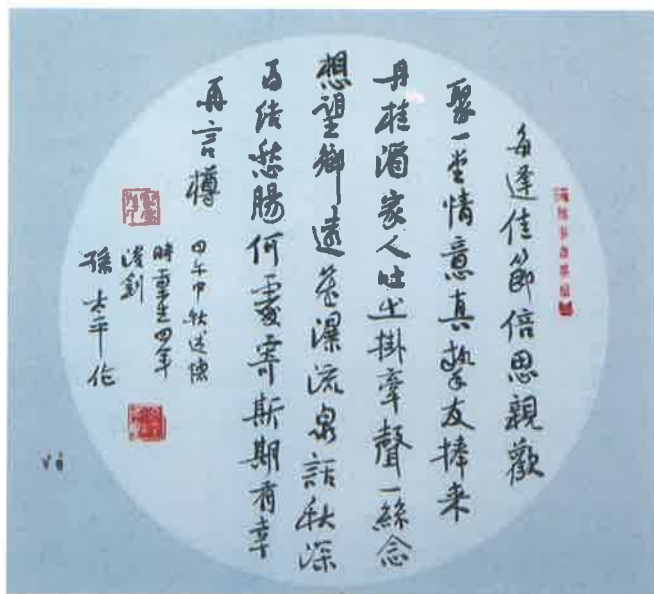 每逢佳節倍思親歡
聚一堂情意真摯友捧来
丹桂酒家人吐出掛牽聲一絲念
想望鄉遠飛瀑流泉話秋深
百结愁腸何處寄斯期有幸
再言樽
中秋述懷
時重生四年
孫太平作